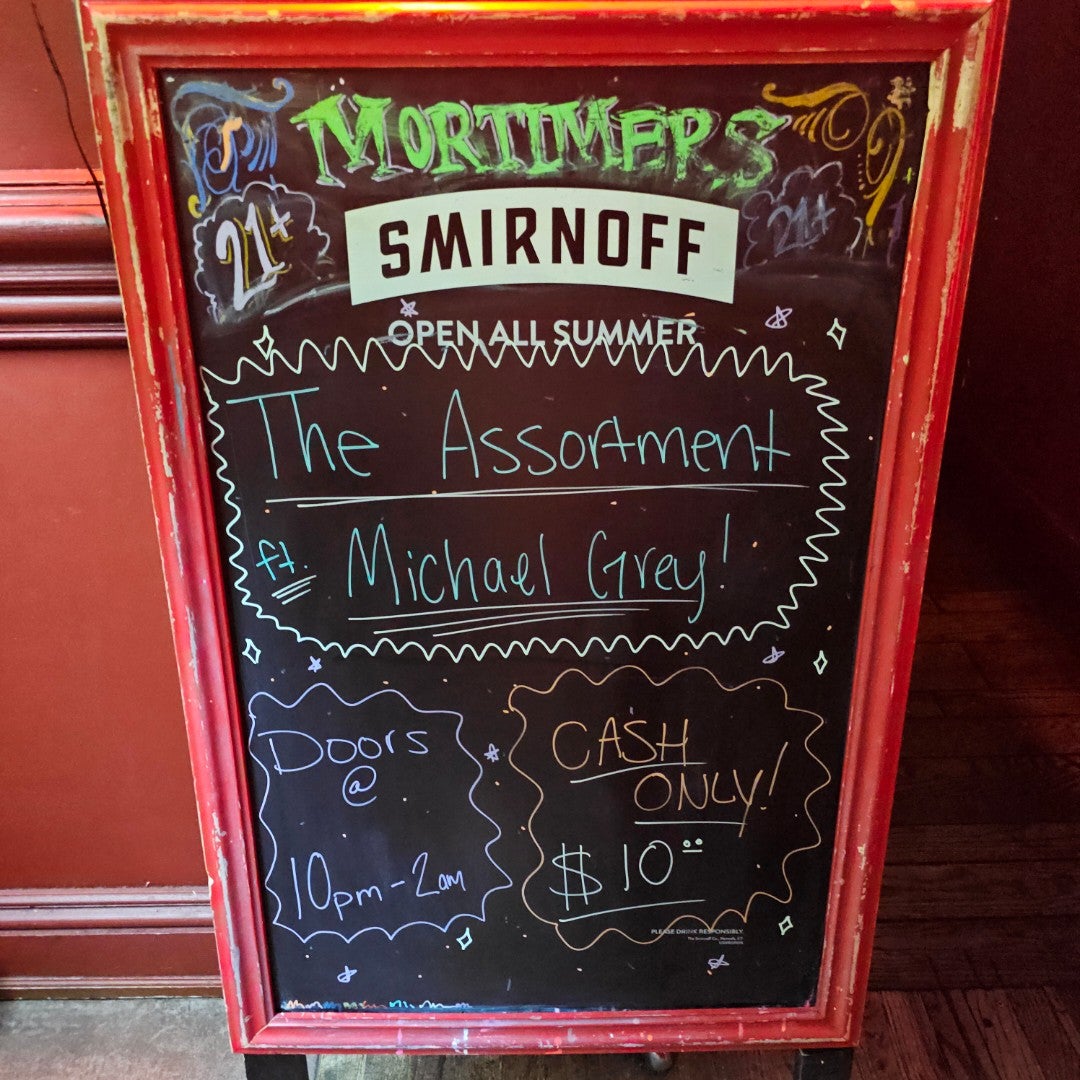 MORTIMERS
21+
21+
SMIRNOFF
OPEN ALL SUMMER
The Assortment
ft. Michael Grey!
Doors
@
10pm-2am
CASH
ONLY!
$10⁰⁰
PLEASE DRINK RESPONSIBLY.